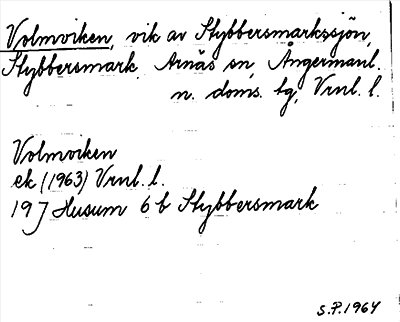 Volmviken, vik av Stybbersmarkssjön,
Stybbersmark, Arnäs sn, Ångermanl.
n. doms. tg, Vrnl. l.
Volmviken
ek (1963) Vrnl. l.
19 J Husum 6 b Stybbersmark
S.P. 1964